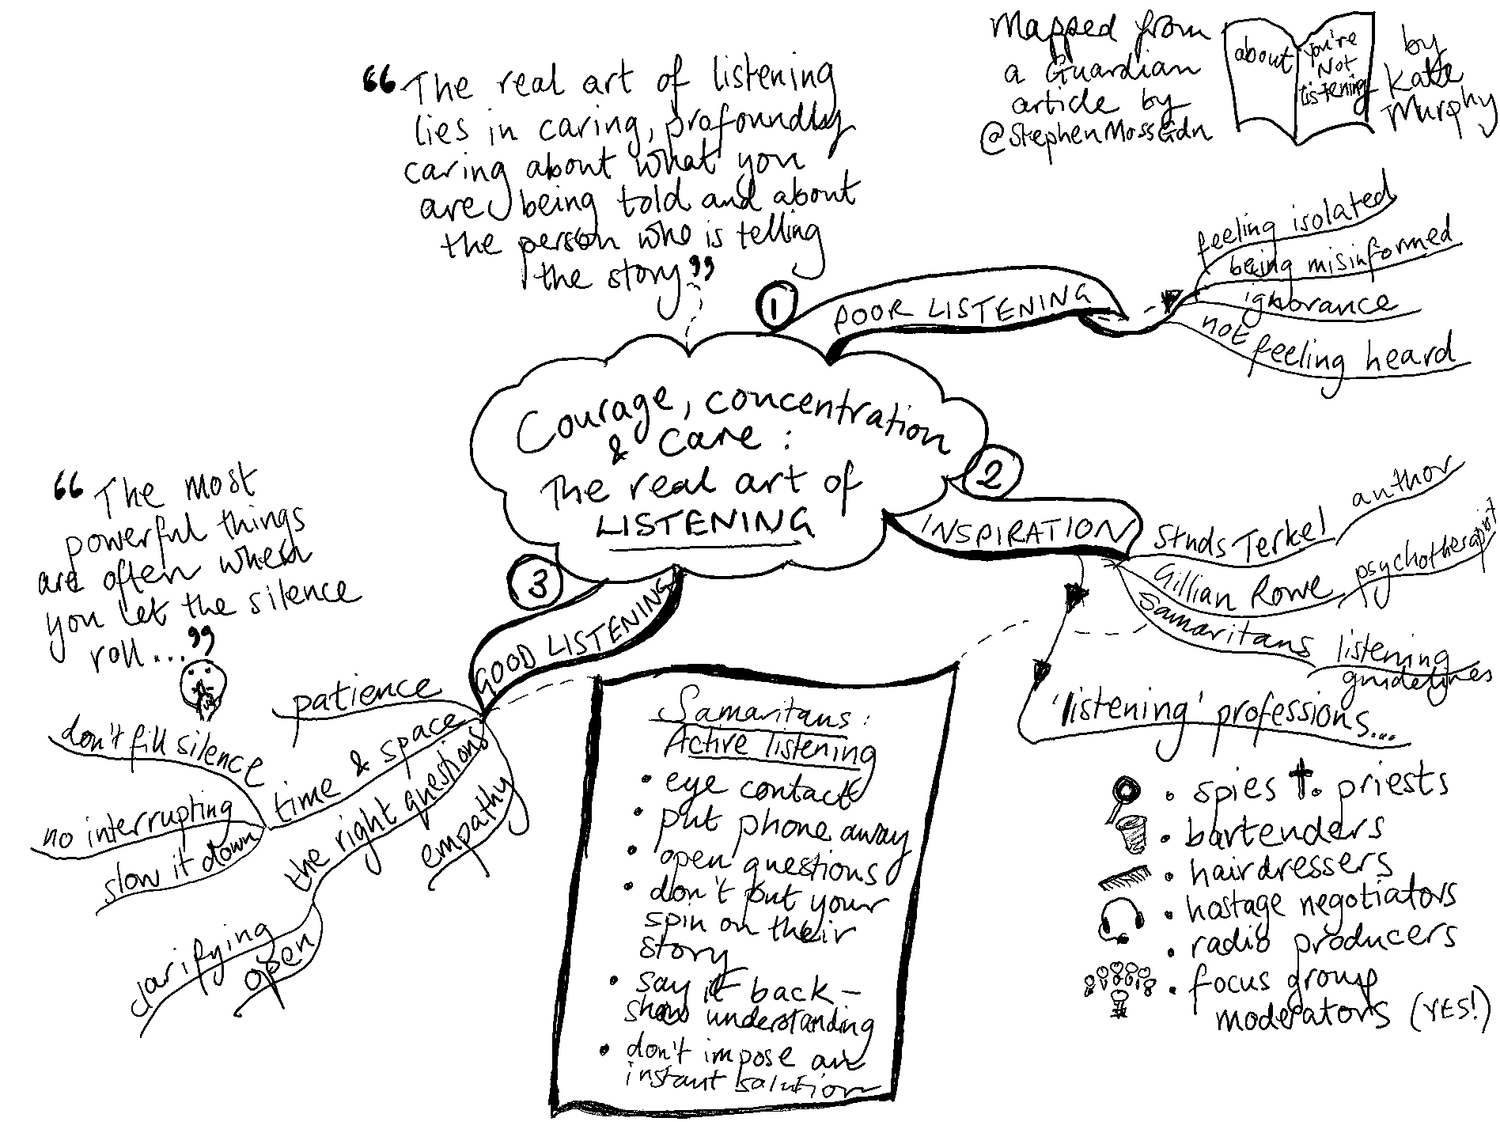 Mapped from
a Guardian
article by
@StephenMossGdn
about
You're
Not
Listening
by
Kate
Murphy
“The real art of listening
lies in caring, profoundly
caring about what you
are being told and about
the person who is telling
the story”
Courage, concentration
& care:
The real art of
LISTENING
1
POOR LISTENING
feeling isolated
being misinformed
ignorance
not feeling heard
2
INSPIRATION
Studs Terkel
author
Gillian Rowe
psychotherapist
Samaritans
listening
guidelines
'listening' professions...
• spies • priests
• bartenders
• hairdressers
• hostage negotiators
• radio producers
• focus group
moderators (YES!)
3
GOOD LISTENING
patience
time & space
don't fill silence
no interrupting
slow it down
the right questions
clarifying
open
empathy
“The most
powerful things
are often when
you let the silence
roll...”
Samaritans:
Active listening
• eye contact
• put phone away
• open questions
• don't put your
spin on their
story
• say it back –
show understanding
• don't impose an
instant solution